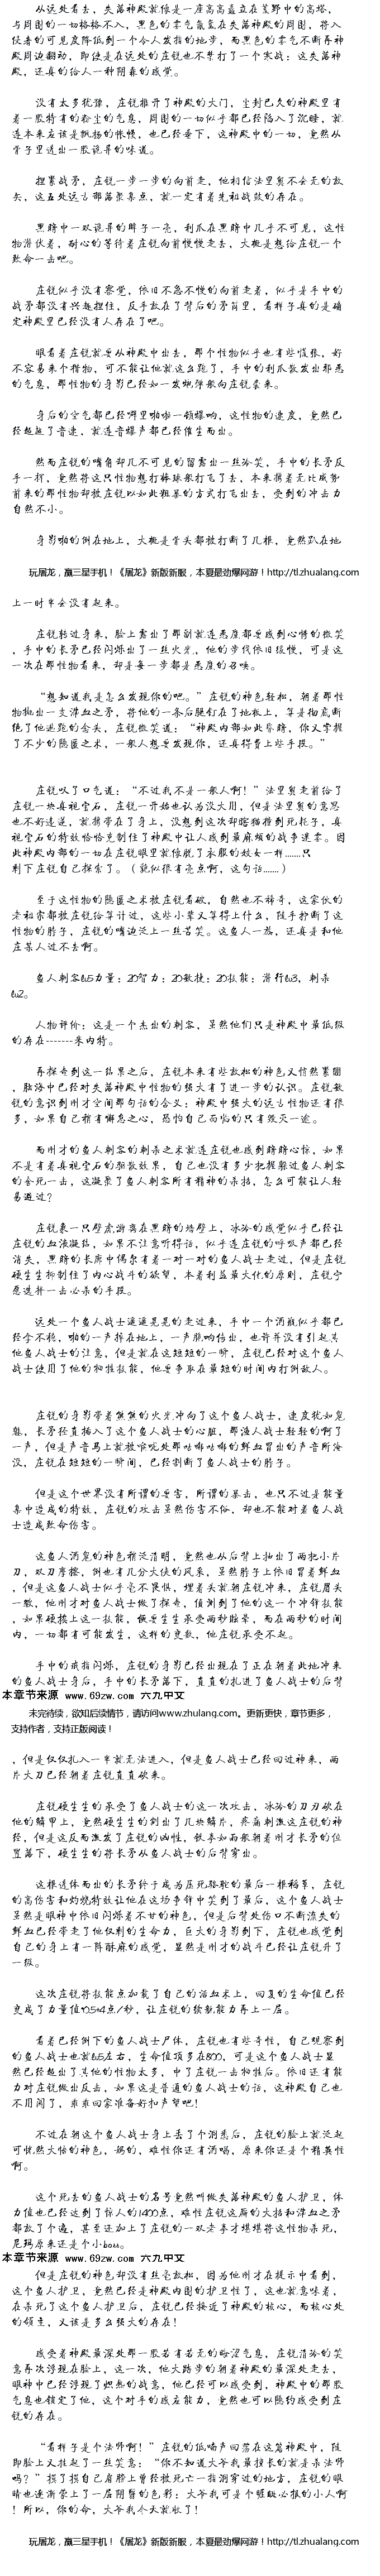 从远处看去，失落神殿就像是一座高高矗立在荒野中的高塔，
与周围的一切格格不入，黑色的雾气氤氲在失落神殿的周围，将入
侵者的可见度降低到一个令人发指的地步，而黑色的雾气不断再神
殿周边翻动，即使是在远处的庄锐也不禁打了一个寒战：这失落神
殿，还真的给人一种阴森的感觉。
没有太多犹豫，庄锐推开了神殿的大门，尘封已久的神殿里有
着一股特有的粉尘的气息，周围的一切似乎都已经陷入了沉睡，就
连本来应该是飘扬的帐幔，也已经垂下，这神殿中的一切，竟然从
骨子里透出一股诡异的味道。
捏紧战矛，庄锐一步一步的向前走，他相信法里奥不会无的放
矢，这五处远古部落聚集点，就一定有着先祖战鼓的存在。
黑暗中一双诡异的眸子一亮，利爪在黑暗中几乎不可见，这怪
物潜伏着，耐心的等待着庄锐向前慢慢走去，大概是想给庄锐一个
致命一击吧。
庄锐似乎没有察觉，依旧不急不慢的向前走着，似乎是手中的
战矛都没有兴趣捏住，反手放在了背后的矛筒里，看样子真的是确
定神殿里已经没有人存在了吧。
眼看着庄锐就要从神殿中出去，那个怪物似乎也有些慌张，好
不容易来个猎物，可不能让他就这么跑了，手中的利爪散发出邪恶
的气息，那怪物的身影已经如一发炮弹般向庄锐袭来。
身后的空气都已经噼里啪啦一顿爆响，这怪物的速度，竟然已
经超越了音速，就连音爆声都已经催生而出。
然而庄锐的嘴角却几不可见的留露出一丝冷笑，手中的长矛反
手一挥，竟然将这只怪物想打棒球般打飞了去，本来携着无比威势
前来的那怪物却被庄锐以如此粗暴的方式打飞出去，受到的冲击力
自然不小。
身影啪的倒在地上，大概是骨头都被打断了几根，竟然趴在地
玩屠龙，赢三星手机！《屠龙》新版新服，本夏最劲爆网游！http://tl.zhulang.com
上一时半会没有起来。
庄锐转过身来，脸上露出了那副就连恶魔都要感到心悸的微笑
，手中的长矛已经闪烁出了一丝火光，他的步伐依旧缓慢，可是这
一次在那怪物看来，却是每一步都是恶魔的召唤。
“想知道我是怎么发现你的吧。”庄锐的神色轻松，朝着那怪
物抛出一支淬血之矛，将他的一条后腿钉在了地板上，算是彻底断
绝了他逃跑的念头，庄锐微笑道：“神殿内部如此昏暗，你又掌握
了不少的隐匿之术，一般人想要发现你，还真得费上些手段。”
庄锐叹了口气道：“不过我不是一般人啊！”法里奥走前给了
庄锐一块真视宝石，庄锐一开始也认为没大用，但是法里奥的意思
也不好违逆，就携带在了身上，没想到这次却瞎猫撞到死耗子，真
视宝石的特效恰恰克制住了神殿中让人感到最麻烦的战争迷雾。因
此神殿内部的一切在庄锐眼里就像脱了衣服的妓女一样......只
剩下庄锐自己探索了。（貌似很有亮点啊，这句话......）
至于这怪物的隐匿之术被庄锐看破，自然也不稀奇，这家伙的
老祖宗都被庄锐给算计过，这些小辈又算得上什么，随手拧断了这
怪物的脖子，庄锐的嘴边泛上一丝苦笑。这鱼人一族，还真是和他
庄某人过不去啊。
鱼人刺客lv5力量：20智力：20敏捷：20技能：潜行lv3，刺杀
lv2。
人物评价：这是一个杰出的刺客，虽然他们只是神殿中最低级
的存在-------来内特。
再探查到这一结果之后，庄锐本来有些放松的神色又悄然紧绷
，脑海中已经对失落神殿中怪物的强大有了进一步的认识。庄锐敏
锐的意识到刚才空间那句话的含义：神殿中强大的远古怪物还有很
多，如果自己稍有懈怠之心，恐怕自己面临的只有毁灭一途。
而刚才的鱼人刺客的刺杀之术就连庄锐也感到暗暗心惊，如果
不是有着真视宝石的驱散效果，自己也没有多少把握躲过鱼人刺客
的舍死一击，这凝聚了鱼人刺客所有精神的杀招，怎么可能让人轻
易避过？
庄锐象一只壁虎游离在黑暗的墙壁上，冰冷的感觉似乎已经让
庄锐的血液凝结，如果不注意听得话，似乎连庄锐的呼吸声都已经
消失，黑暗的长廊中偶尔有着一对一对的鱼人战士走过，但是庄锐
硬生生抑制住了内心战斗的欲望，本着利益最大化的原则，庄锐宁
愿选择一击必杀的手段。
远处一个鱼人战士遥遥晃晃的走过来，手中一个酒瓶似乎都已
经拿不稳，啪的一声摔在地上，一声脆响传出，也许并没有引起其
他鱼人战士的注意，但是就在这短短的一瞬，庄锐已经对这个鱼人战
士使用了他的牺牲技能，他要争取在最短的时间内打倒敌人。
庄锐的身影带着熊熊的火光冲向了这个鱼人战士，速度犹如鬼
魅，长矛径直插入了这个鱼人战士的心脏，那渔人战士轻轻的啊了
一声，但是声音马上就被咽喉处那咕嘟咕嘟的鲜血冒出的声音所淹
没，庄锐在短短的一瞬间，已经割断了鱼人战士的脖子。
但是这个世界没有所谓的要害，所谓的暴击，也只不过是能量
集中造成的特效，庄锐的攻击虽然伤害不俗，却也不能对着鱼人战
士造成致命伤害。
这鱼人酒鬼的神色稍泛清明，竟然也从后背上抽出了两把小片
刀，双刀摩擦，倒也有几分大侠的风采，虽然脖子上依旧冒着鲜血
，但是这鱼人战士似乎毫不畏惧，埋着头就朝庄锐冲来，庄锐眉头
一皱，他刚才对鱼人战士做了探查，侦测到了他的这一个冲锋技能
，如果硬撼上这一技能，佩要生生承受两秒眩晕，而在两秒的时间
内，一切都有可能发生，这样的变数，他庄锐承受不起。
手中的戒指闪烁，庄锐的身影已经出现在了正在朝着此地冲来
的鱼人战士身后，手中的长矛落下，直直的扎进了鱼人战士的后背
本章节来源 www.69zw.com 六九中文
未完待续，欲知后续情节，请访问www.zhulang.com。更新更快，章节更多，
支持作者，支持正版阅读！
，但是仅仅扎入一半就无法进入，但是鱼人战士已经回过神来，两
片大刀已经朝着庄锐直直砍来。
庄锐硬生生的承受了鱼人战士的这一次攻击，冰冷的刀刃砍在
他的鳞甲上，竟然硬生生的剁出了几块鳞片，疼痛刺激这庄锐的神
经，但是这反而激发了庄锐的凶性，铁拳如雨般朝着刚才长矛的位
置落下，硬生生的将长矛从鱼人战士的后背穿出。
这根透体而出的长矛终于成为压死骆驼的最后一根稻草，庄锐
的高伤害和灼烧特效让他在这场争锋中笑到了最后，这个鱼人战士
虽然是眼神中依旧闪烁着不甘的神色，但是后背处伤口不断流失的
鲜血已经带走了他仅剩的生命力，巨大的身影到下，庄锐也感觉到
自己的身上有一阵酥麻的感觉，显然是刚才的战斗已经让庄锐升了
一级。
这次庄锐将技能点加载了自己的活血术上，回复的生命值已经
变成了力量值*0.5+4点/秒，让庄锐的续航能力再上一层。
看着已经倒下的鱼人战士尸体，庄锐也有些奇怪，自己观察到
的鱼人战士也就lv5左右，生命值顶多在800，可是这个鱼人战士显
然已经超出了其他的怪物太多，中了庄锐一击牺牲后。依旧还有能
力对庄锐做出反击，如果这是普通的鱼人战士的话，这神殿自己也
不用闯了，乖乖回家准备好扣声望吧！
不过在朝这个鱼人战士身上丢了个洞悉后，庄锐的脸上就泛起
可恍然大悟的神色，妈的，难怪你还有酒喝，原来你还是个精英怪
啊。
这个死去的鱼人战士的名号竟然叫做失落神殿的鱼人护卫，体
力值也已经达到了惊人的1400点，难怪庄锐这厮的大招和淬血之矛
都放了个遍，甚至还加上了庄锐的一双老拳才堪堪将这怪物杀死，
尼玛原来还是个小boss。
本章节来源 www.69zw.com 六九中文
但是庄锐的神色却没有丝毫放松，因为他刚才在提示中看到，
这个鱼人护卫，竟然已经是神殿内围的护卫怪了，这也就意味着，
在杀死了这个鱼人护卫后，庄锐已经接近了神殿的核心，而核心处
的领主，又该是多么强大的存在！
感受着神殿最深处那一股若有若无的晦涩气息，庄锐清冷的笑
意再次浮现在脸上，这一次，他大踏步的朝着神殿的最深处走去，
眼神中已经浮现了炽热的战意，他已经可以感受到，神殿中的那股
气息也锁定了他，这个对手的感应能力，竟然也可以隐约感受到庄
锐的存在。
“看样子是个法师啊！”庄锐的低喃声回荡在这篇神殿中，随
即脸上又挂起了一丝笑意：“你不知道大爷我最擅长的就是杀法师
吗？”摸了摸自己肩膀上曾经被死亡一指洞穿过的地方，庄锐的眼
睛也逐渐蒙上了一层阴翳的色彩：大爷我可是个睚眦必报的小人啊
！所以，你的命，大爷我今天就收了！
玩屠龙，赢三星手机！《屠龙》新版新服，本夏最劲爆网游！http://tl.zhulang.com